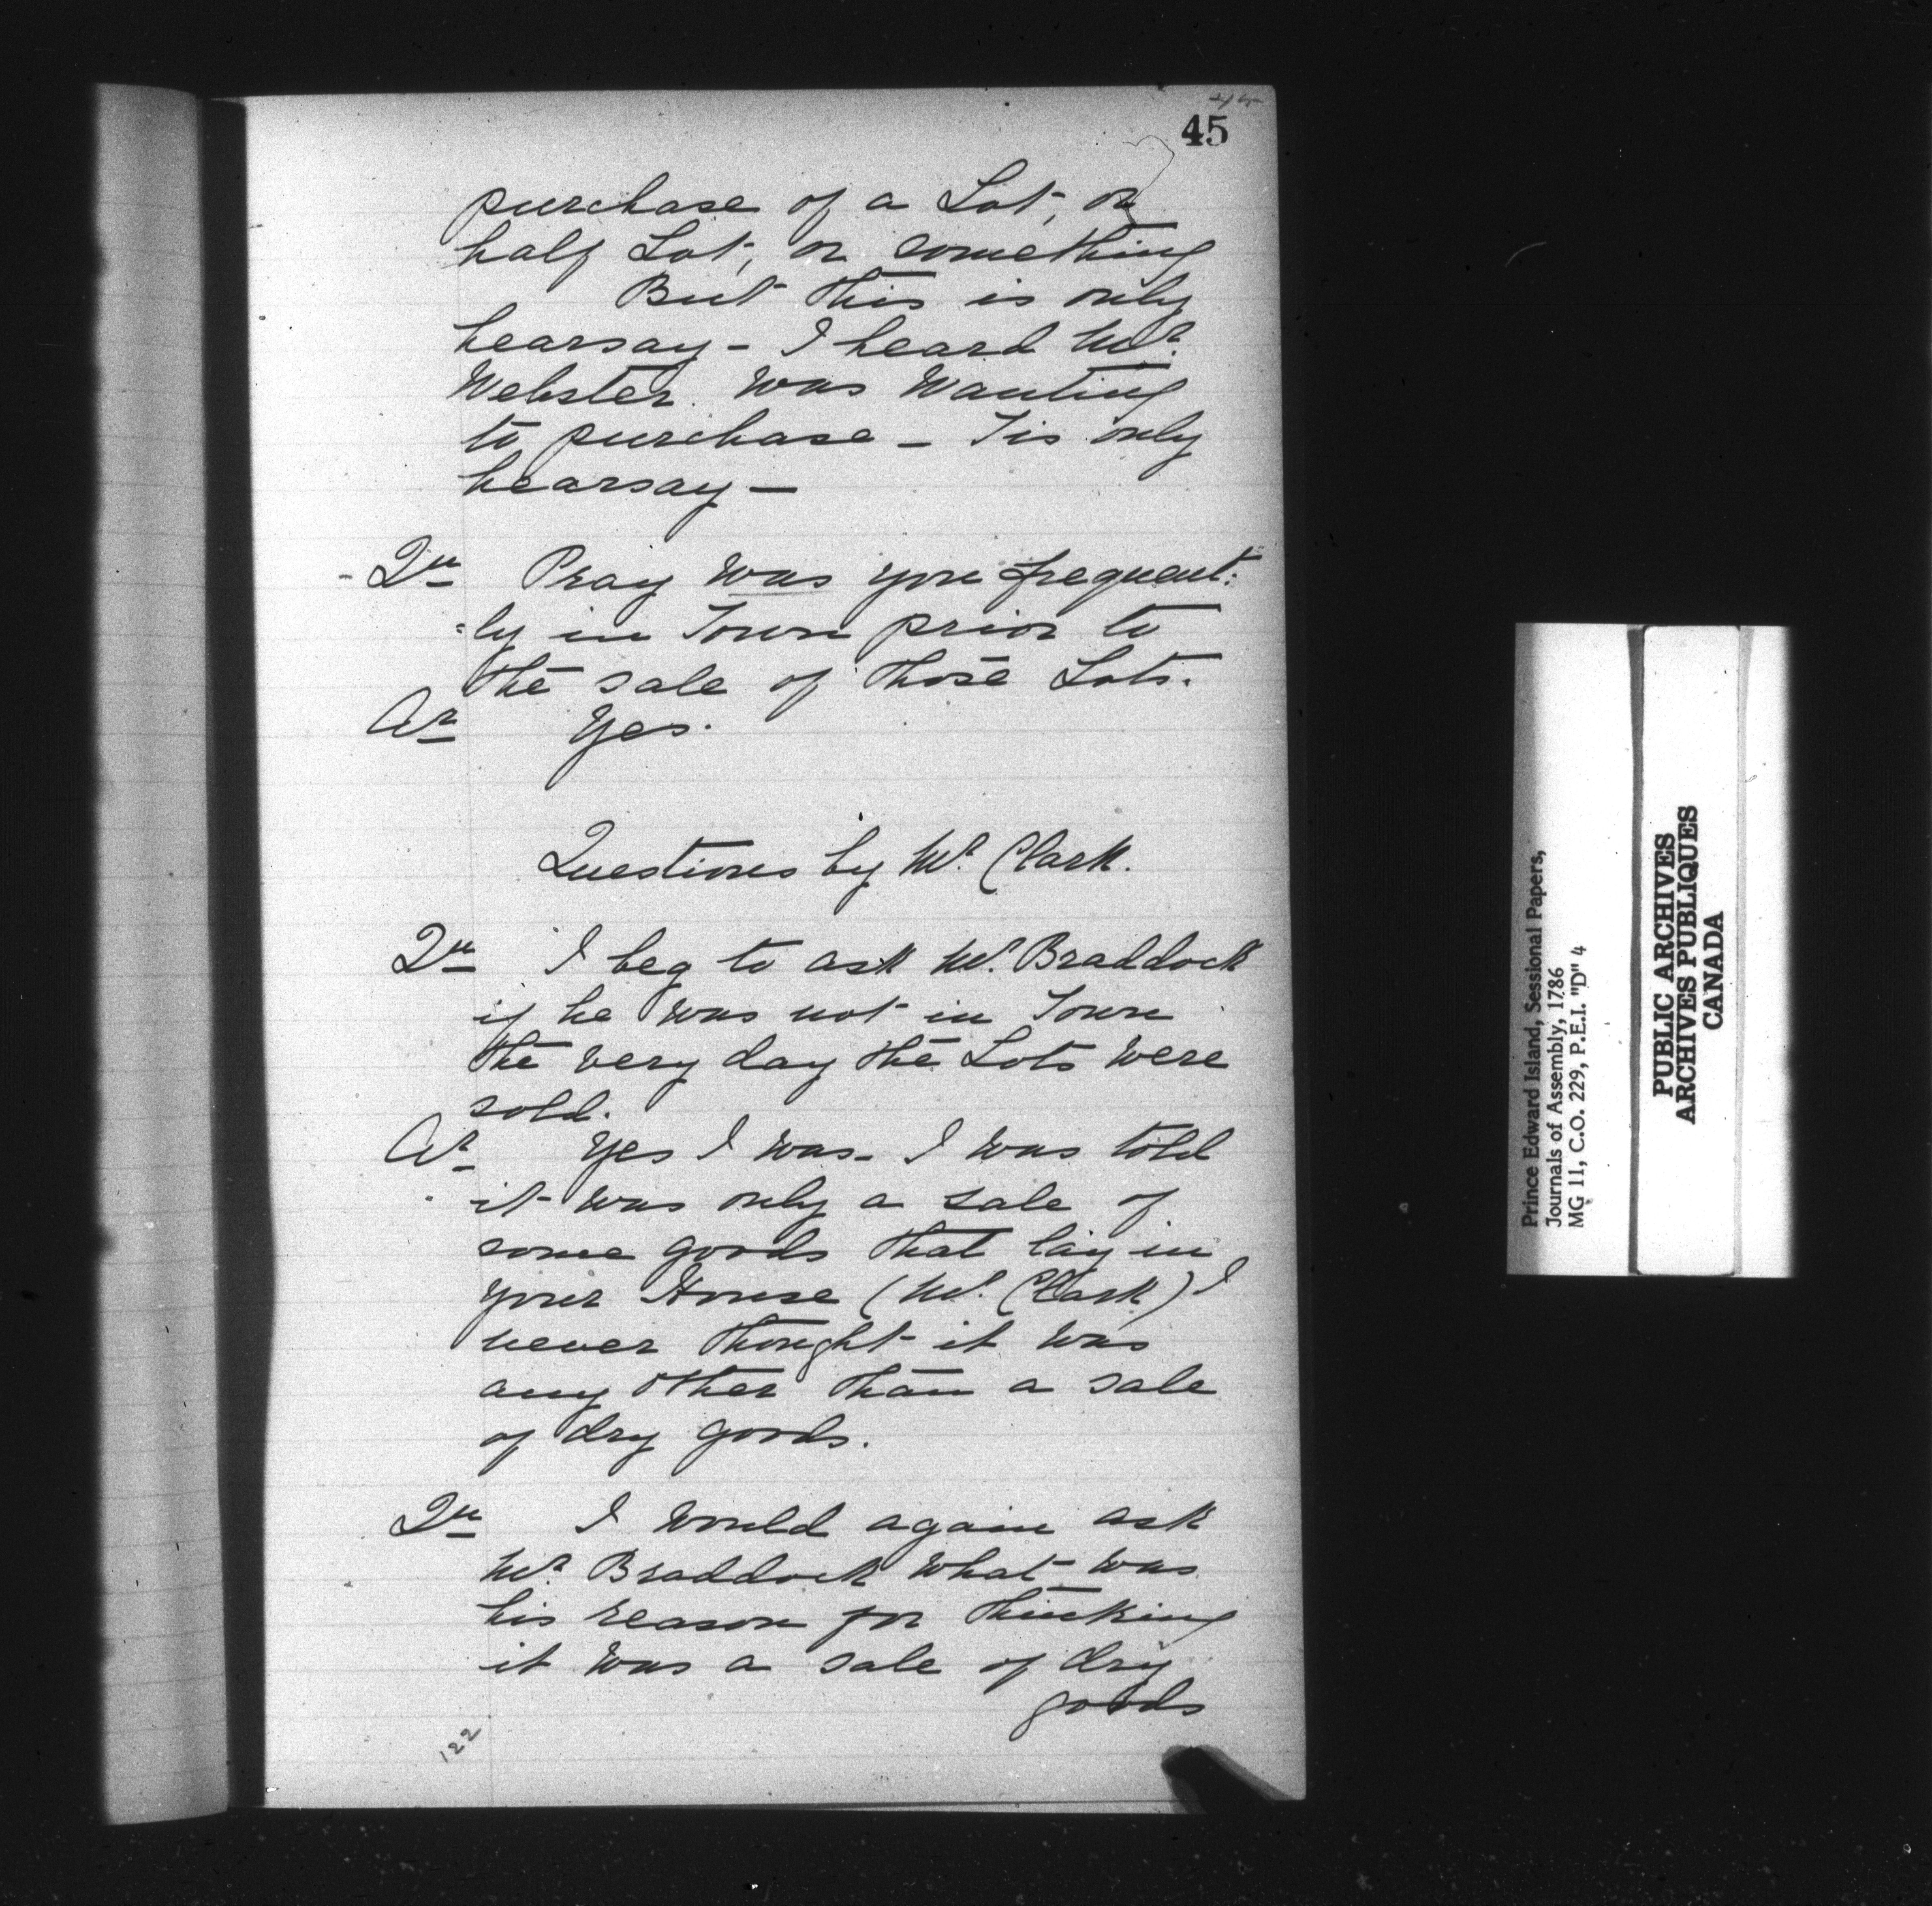 45
purchase of a Lot, or
half Lot, or something
But this is only
hearsay - I heard Mr.
Webster was wanting
to purchase - Tis only
hearsay -
Qu Pray was you frequent:
:ly in Town prior to
the sale of those Lots.
Ar Yes.
Questions by Mr. Clark.
Qu I beg to ask Mr. Braddock
if he was not in Town
the very day the Lots were
sold.
Ar Yes I was - I was told
it was only a sale of
some goods that lay in
your House (Mr. Clark) I
never thought it was
any other than a sale
of dry goods.
Qu I would again ask
Mr. Braddock what was
his reason for thinking
it was a sale of dry
goods
122
Prince Edward Island, Sessional Papers,
Journals of Assembly, 1786
MG 11, C.O. 229, P.E.I. "D" 4
PUBLIC ARCHIVES
ARCHIVES PUBLIQUES
CANADA